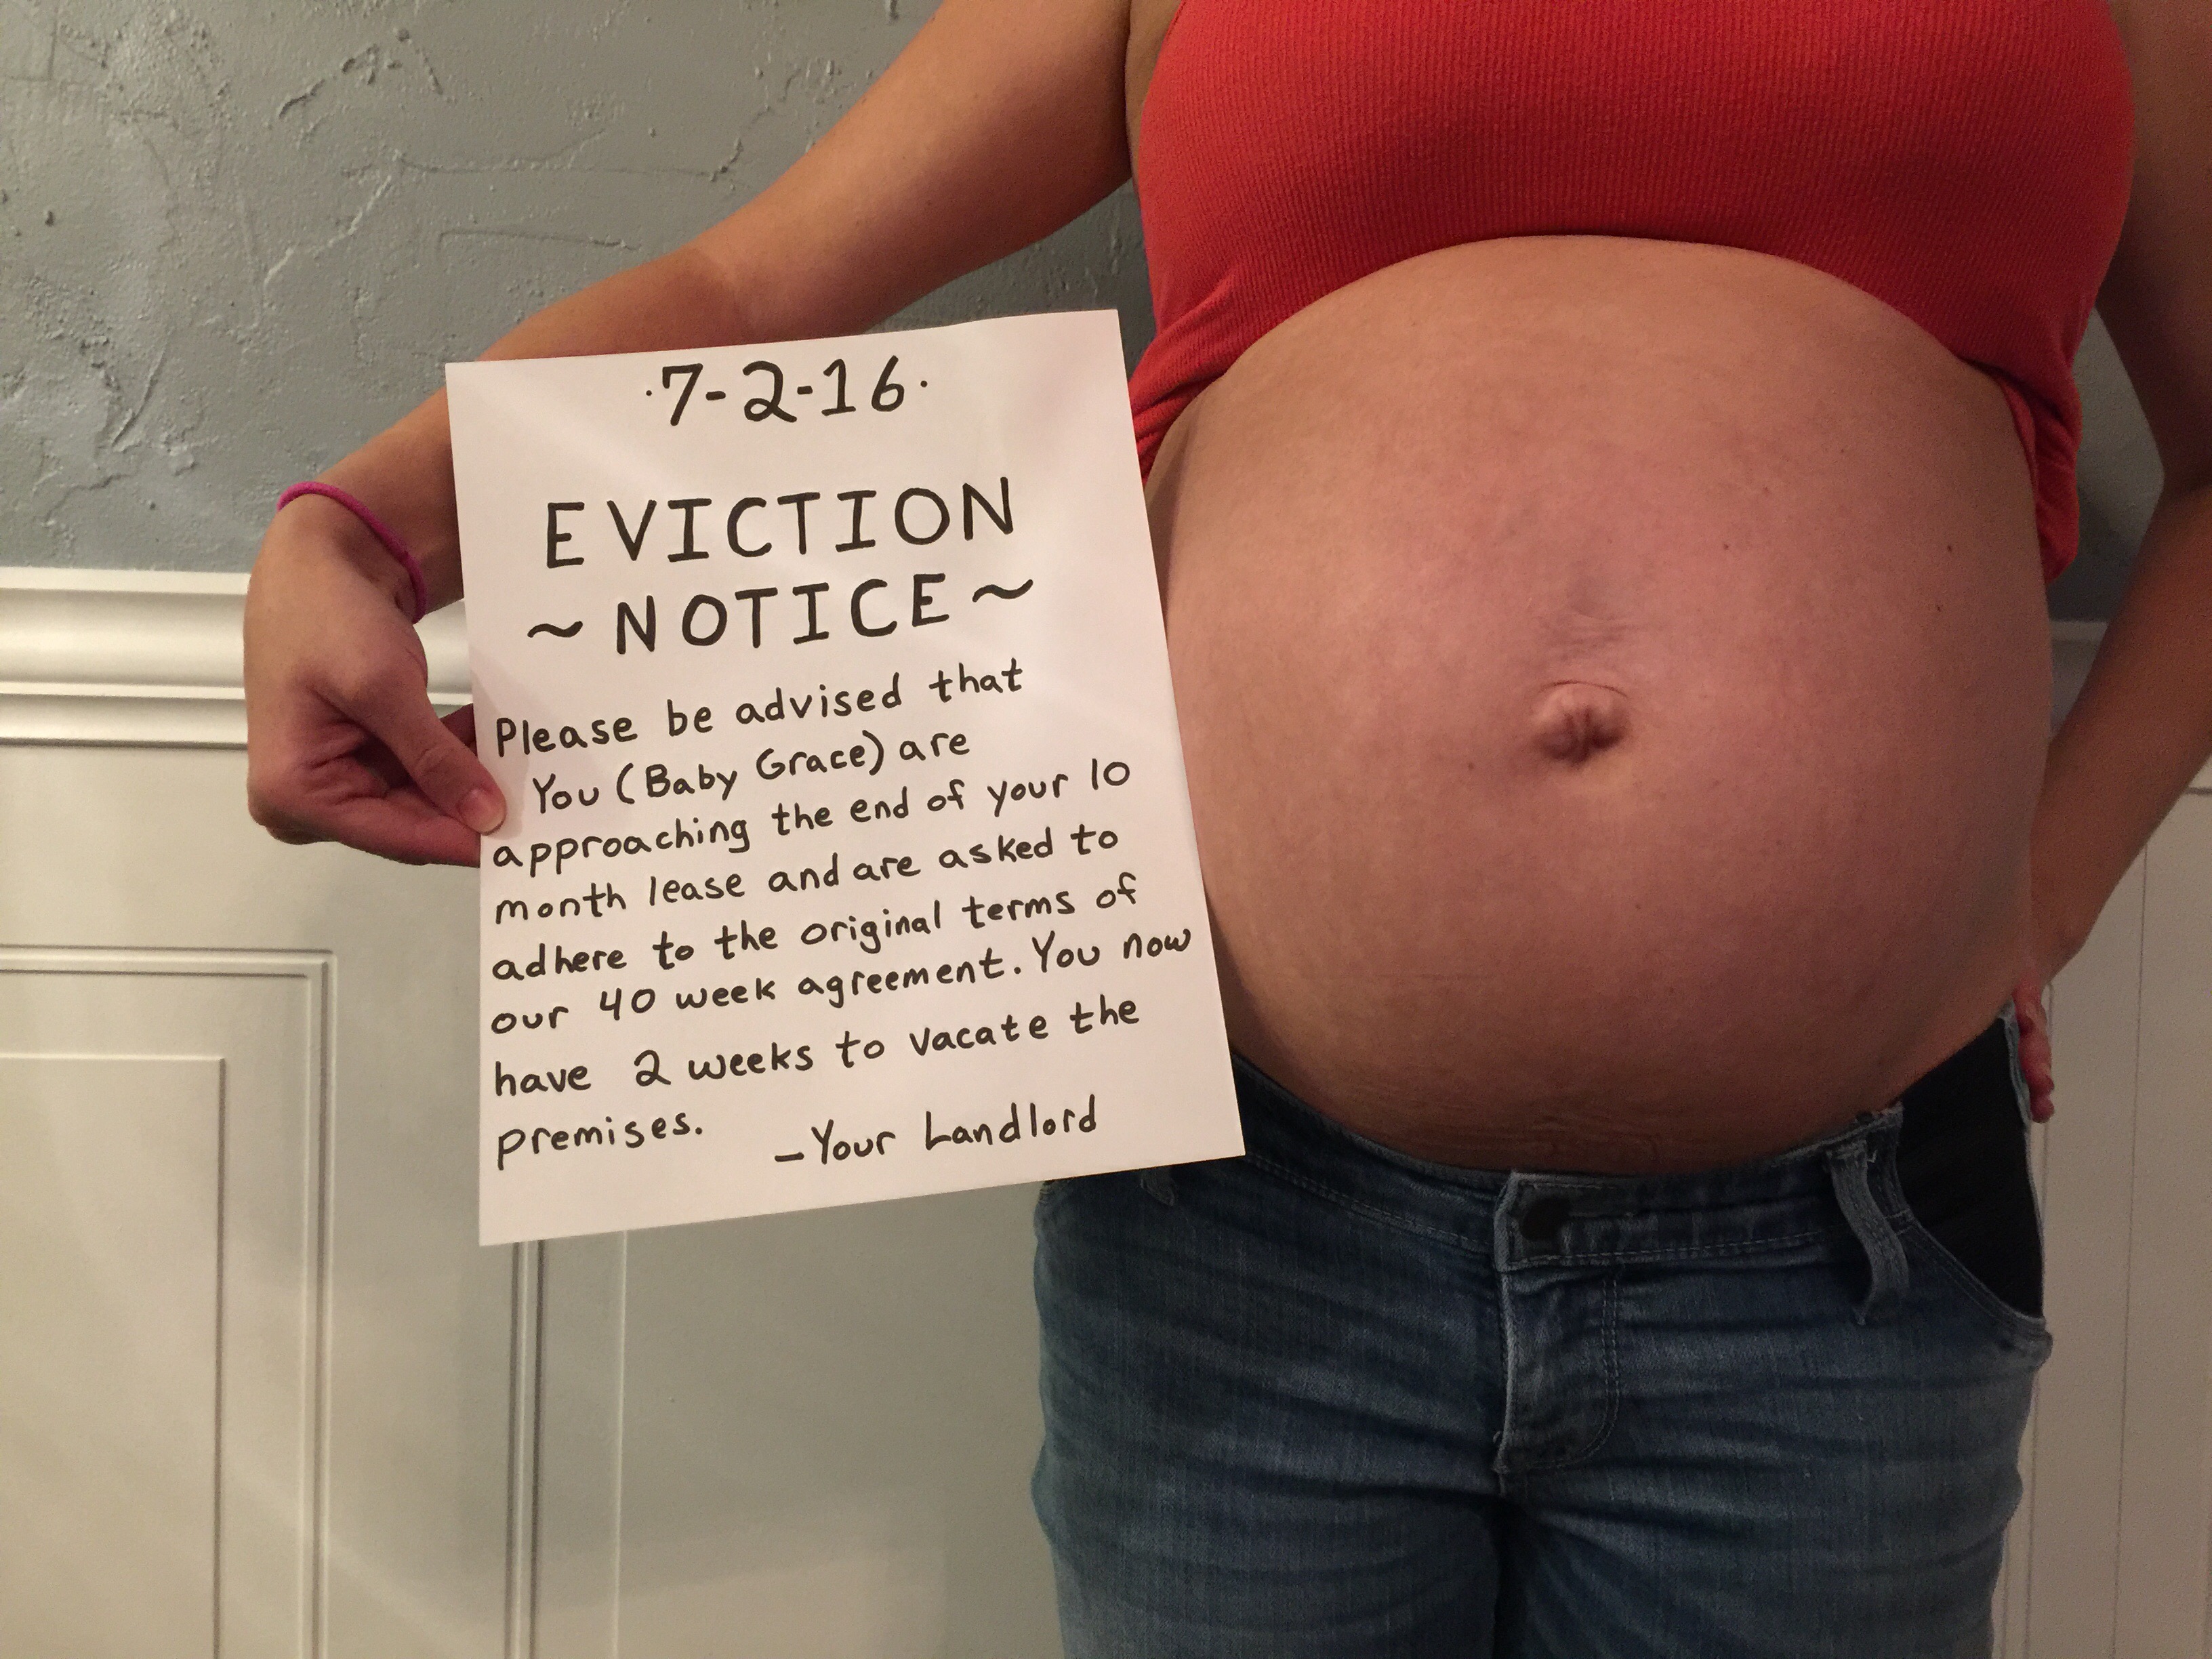 ·7-2-16·
EVICTION
~NOTICE~
Please be advised that
You (Baby Grace) are
approaching the end of your 10
month lease and are asked to
adhere to the original terms of
our 40 week agreement. You now
have 2 weeks to vacate the
premises.
-Your Landlord